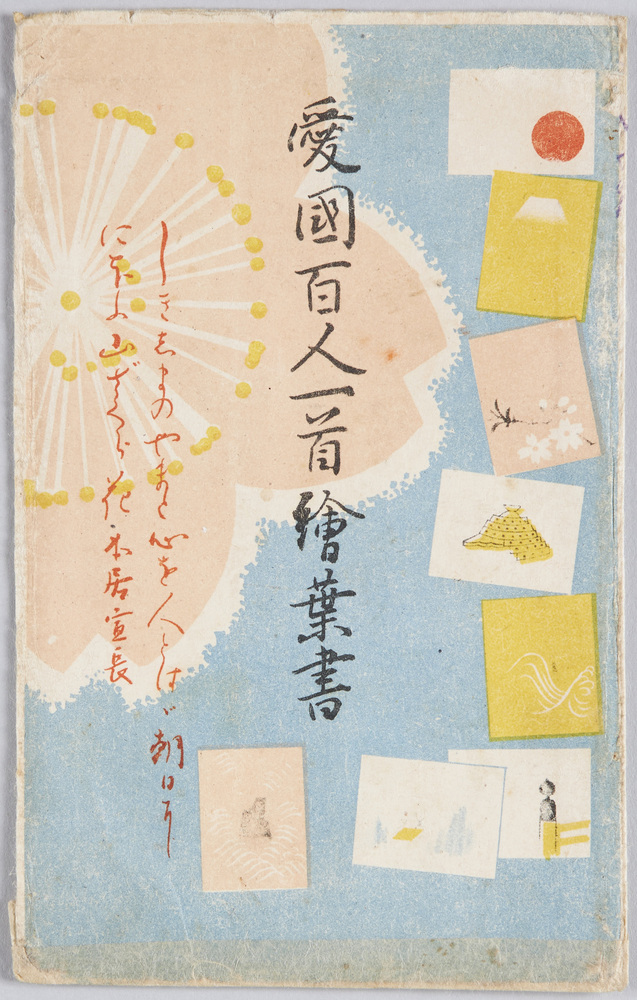 愛國百人一首繪葉書
しき志まのやまと心を人とはゞ朝日に
にほふ山ざくら花 本居宣長